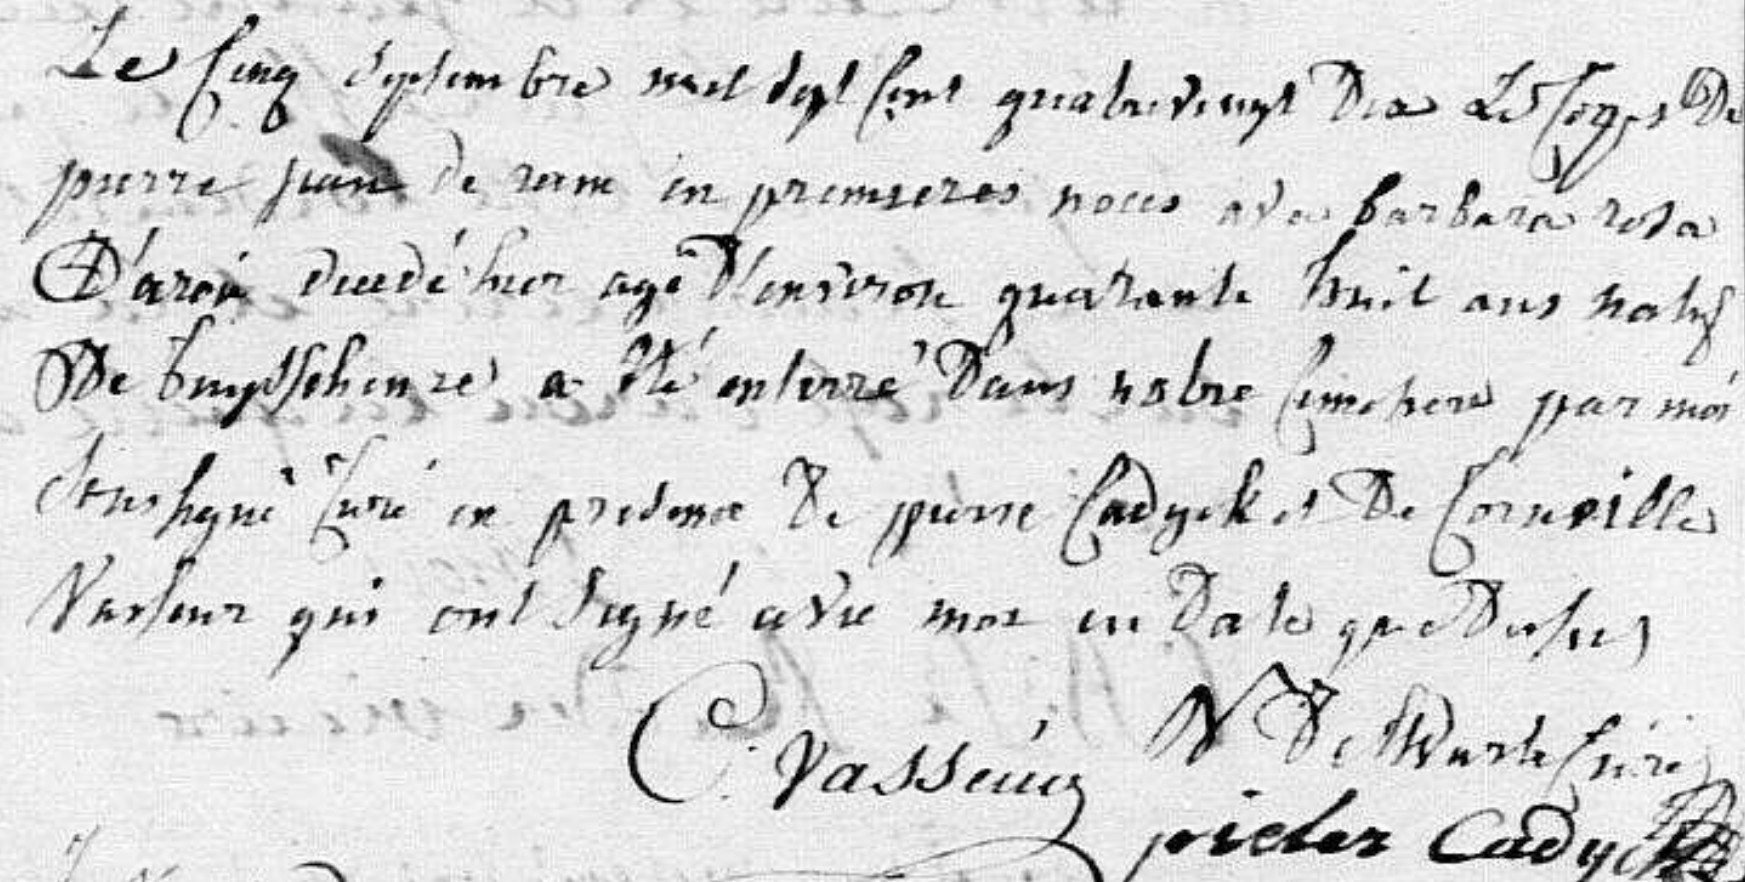 Le Cinq Septembre mil sept Cent quatrevingt Dix Le Corps De
pierre jean de ram en premieres noces avec barbara rosa
D'aroin decedé hier agé D'environ quarante huit ans natif
De buysscheure a été enterré Dans notre Cimetiere par moi
soussigné Curé en presence De pierre Cadyck et De Corneille
Vasseur qui ont signé avec moi en Date que Dessus
C. Vasseur N De Swarte Curé
pieter Cadyck